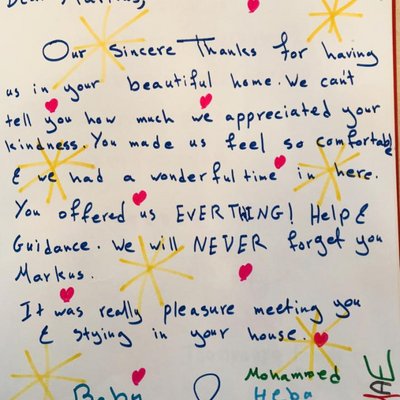 Dear Markus,
Our Sincere Thanks for having
us in your beautiful home. We can't
tell you how much we appreciated your
kindness. You made us feel so comfortable
& we had a wonderful time in here.
You offered us EVERYTHING! Help &
Guidance. We will NEVER forget you
Markus.
It was really pleasure meeting you
& stying in your house.
Mohammed
Heba
UAE